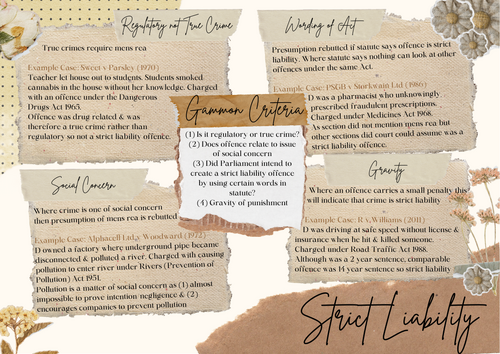 Regulatory not True Crime
True crimes require mens rea
Example Case: Sweet v Parsley (1970)
Teacher let house out to students. Students smoked
cannabis in the house without her knowledge. Charged
with an offence under the Dangerous
Drugs Act 1965.
Offence was drug related & was
therefore a true crime rather than
regulatory so not a strict liability offence.
Wording of Act
Presumption rebutted if statute says offence is strict
liability. Where statute says nothing can look at other
offences under the same Act.
Example Case: PSGB v Storkwain Ltd (1986)
D was a pharmacist who unknowingly
prescribed fraudulent prescriptions.
Charged under Medicines Act 1968.
As section did not mention mens rea but
other sections did court could assume was a
strict liability offence.
Gammon Criteria
(1) Is it regulatory or true crime?
(2) Does offence relate to issue
of social concern
(3) Did Parliament intend to
create a strict liability offence
by using certain words in
statute?
(4) Gravity of punishment
Social Concern
Where crime is one of social concern
then presumption of mens rea is rebutted
Example Case: Alphacell Ltd,v Woodward (1972)
D owned a factory where underground pipe became
disconnected & polluted a river. Charged with causing
pollution to enter river under Rivers (Prevention of
Pollution) Act 1951.
Pollution is a matter of social concern as (1) almost
impossible to prove intention/negligence & (2)
encourages companies to prevent pollution
Gravity
Where an offence carries a small penalty this
will indicate that crime is strict liability
Example Case: R v,Williams (2011)
D was driving at safe speed without license &
insurance when he hit & killed someone.
Charged under Road Traffic Act 1988.
Although was a 2 year sentence, comparable
offence was 14 year sentence so strict liability
Strict Liability